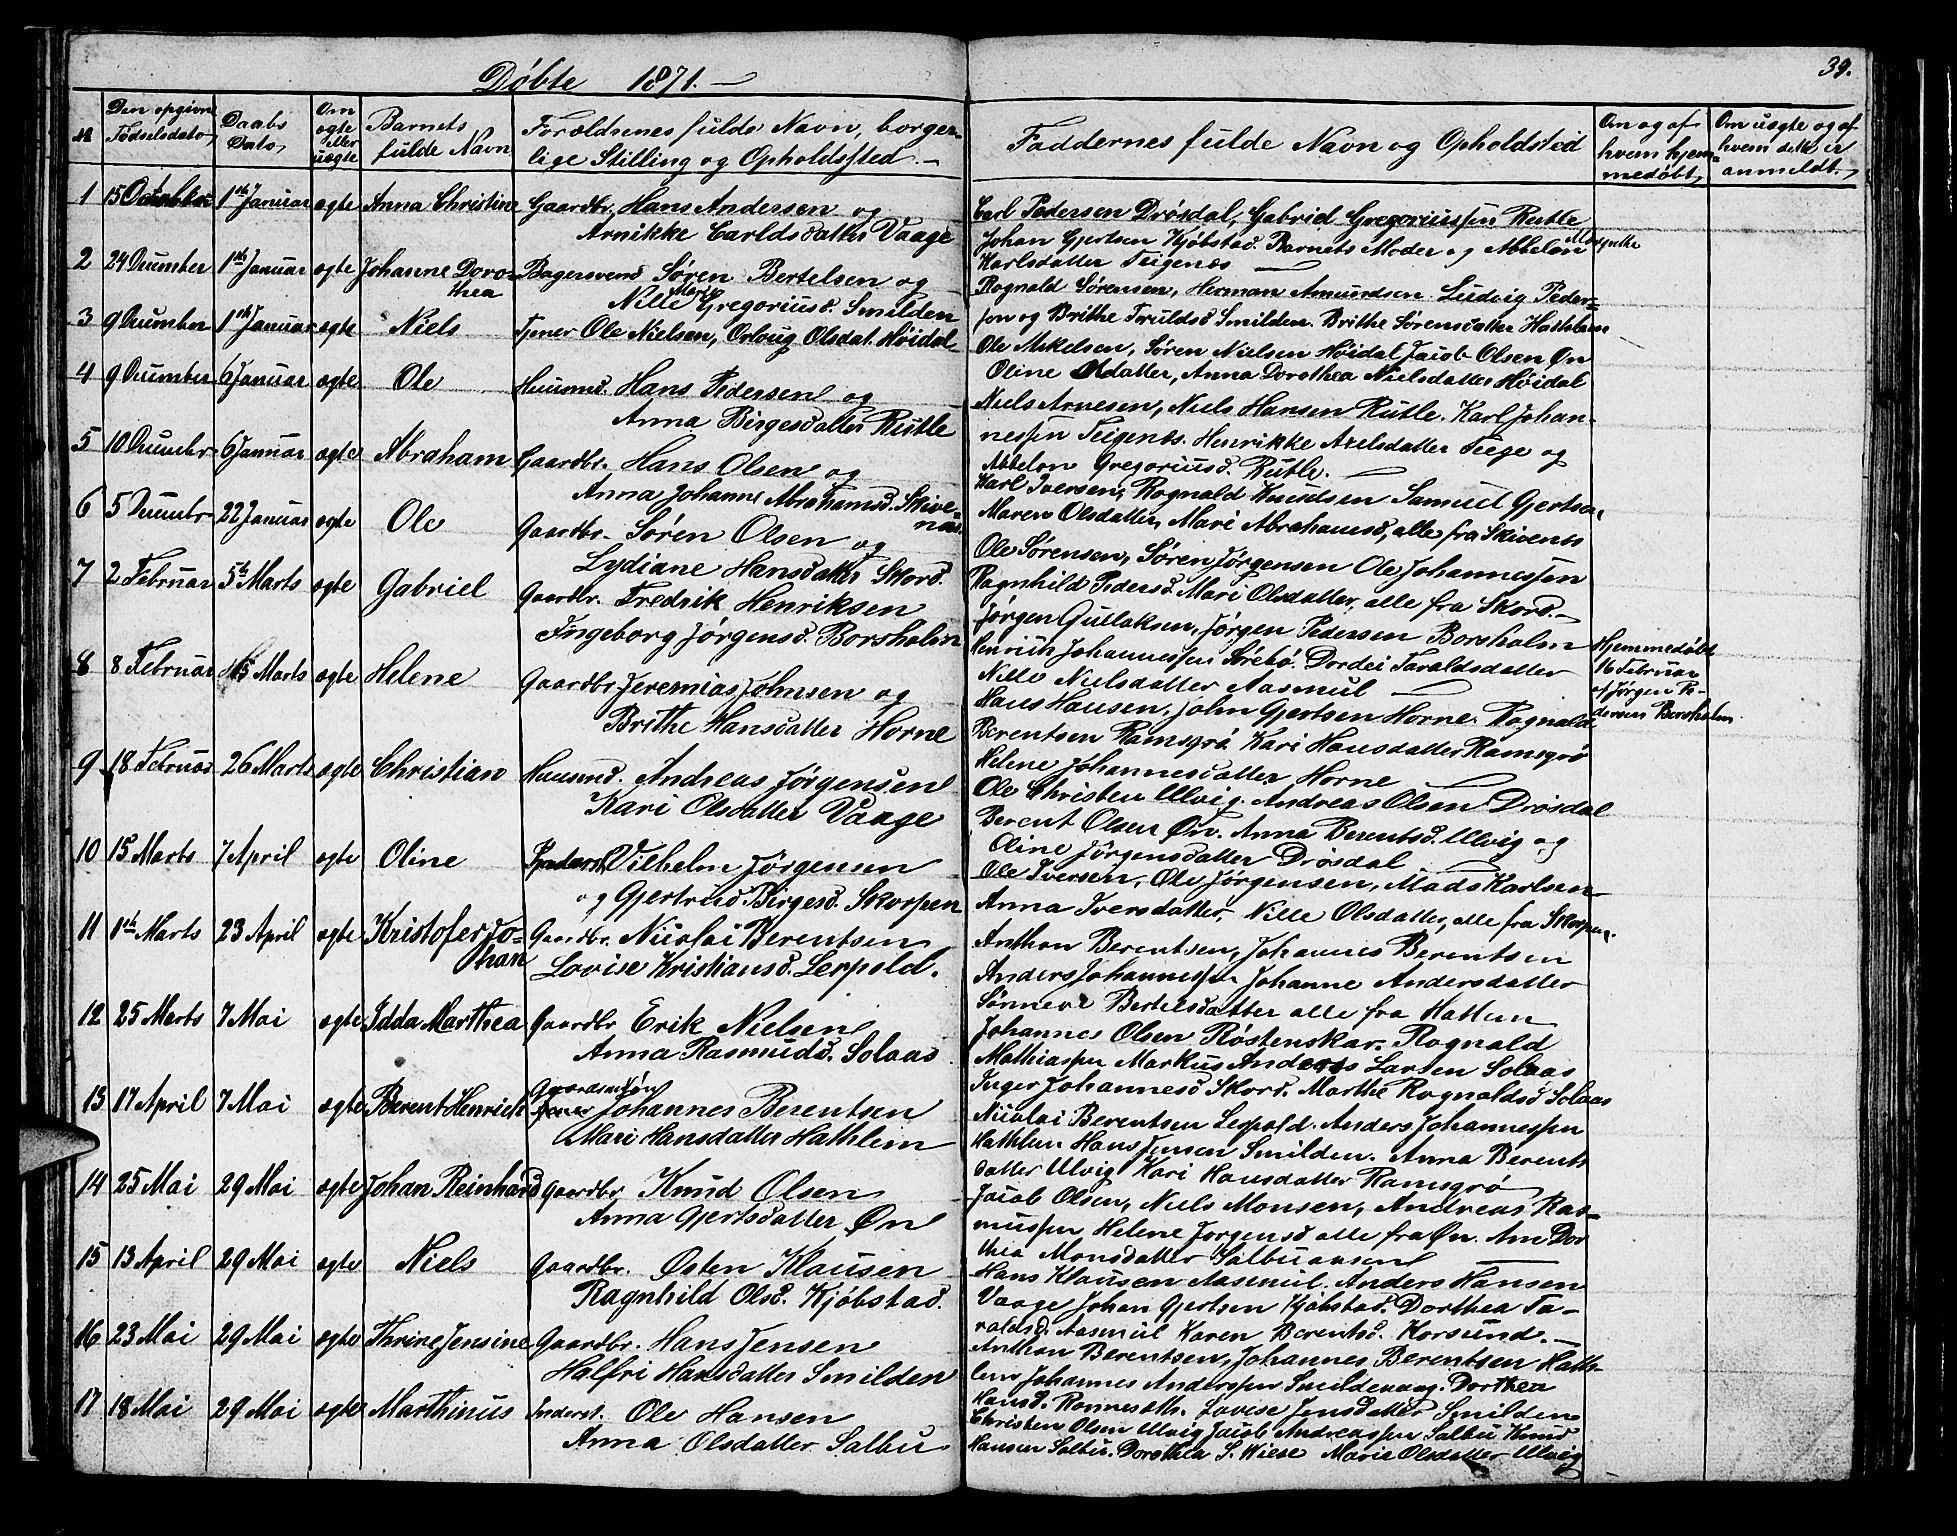 39.
Døbte 1871.
№
Den opgivne
Fødselsdato
Daabs
Dato
Om
ægte
eller
uægte
Barnets
fulde Navn
Forældrenes fulde Navn, borger-
lige Stilling og Opholdssted.
Faddernes fulde Navn og Opholdsted
Om og af
hvem hjem-
medøbt
Om uægte og af
hvem dette er
anmeldt.
1 15 October 1ste Januar ægte Anna Christine Gaardbr. Hans Andersen og
Arnikke Carldsdatter Vaage
Carl Pedersen Drøsdal, Gabriel Gregoriussen Rutle
Johan Gjertsen Kjøbstad. Barnets Moder og Abbelon Margrethe
Karlsdatter Teigenæs
2 24 December 1ste Januar ægte Johanne Doro-
thea
Bagersvend Søren Bertelsen og
Nille Marie Gregoriusd. Smilden
Rognald Sørensen, Herman Amundsen. Ludvig Peder-
sen og Brithe Truldsd Smilden. Brithe Sørensdatter Hathlem
3 9 December 1ste Januar ægte Niels Tjener Ole Nielsen, Orloug Olsdat. Høidal
Ole Mikelsen, Søren Nielsen Høidal Jacob Olsen Øn
Oline Olsdatter, Anna Dorothea Nielsdatter Høidal
4 9 December 6 Januar ægte Ole Huusmd. Hans Pedersen og
Anna Birgesdatter Rutle
Niels Arnesen, Niels Hansen Rutle. Karl Johan-
nessen Teigenæs. Henrikke Axelsdatter Teige og
Abbelon Gregoriusd. Rutle.
5 10 December 6 Januar ægte Abraham Gaardbr. Hans Olsen og
Anna Johanne Abrahamsd. Skive-
næs.
Karl Iversen, Rognald Knudsen Samuel Gjertsen
Maren Olsdatter, Mari Abrahamsd, alle fra Skivenæs
6 5 Decembr 22 Januar ægte Ole Gaardbr. Søren Olsen og
Lydiane Hansdatter Skord.
Ole Sørensen, Søren Jørgensen Ole Johannessen
Ragnhild Pedersd. Mari Olsdatter, alle fra Skord.
7 2 Februar 5te Marts ægte Gabriel Gaardbr. Fredrik Henriksen
Ingeborg Jørgensd. Borsholm
Jørgen Gullaksen, Jørgen Pedersen Borsholm
Henrich Johannessen Sørebø. Dordei Taraldsdatter
Nille Nielsdatter Aasmul
Hjemmedøbt
16 Februar
af Jørgen Pe-
dersen Borsholm
8 8 Februar 15 Marts ægte Helene Gaardbr Jeremias Johnsen og
Brithe Hansdatter Horne
Hans Hansen, John Gjertsen Horne. Rognald
Berentsen Ramsgrø. Kari Hansdatter Ramsgrø
Helene Johannesdatter Horne
9 18 Februar 26 Marts ægte Christian Huusmd. Andreas Jørgensen
Kari Olsdatter Vaage
Ole Christen Ulvig. Andreas Olsen Drøsdal
Berent Olsen Øn. Anna Berentsd. Ulvig og
Oline Jørgensdatter Drøsdal
10 15 Marts 7 April ægte Oline Inderst Vilhelm Jørgensen
og Gjertrud Birgesd. Skorpen
Ole Iversen, Ole Jørgensen, Mads Karlsen
Anna Iversdatter, Nille Olsdatter, alle fra Skorpen.
11 1ste Marts 23 April ægte Kristofer Jo-
han
Gaardbr. Nicolai Berentsen
Lovise Kristiansd. Lerpold.
Anthon Berentsen, Johannes Berentsen
Anders Johannessen Johanne Andersdatter
Sønneve Bertelsdatter alle fra Hatlem
12 25 Marts 7 Mai ægte Idda Marthea Gaardbr Erik Nielsen
Anna Rasmusd. Solaas
Johannes Olsen Røstenskar. Rognald
Mathiassen Markus Anders Larsen Solaas
Inger Johannesd Skord. Marthe Rognaldsd Solaas
13 17 April 7 Mai ægte Berent Henrich Gaardmdsøn
Johannes Berentsen
Mari Hansdatter Hathlem
Nicolai Berentsen Lerpold. Anders Johannessen
Hathlem Hans Jensen Smilden. Anna Berents
datter Ulvig Kari Hansdatter Ramsgrø
14 25 Mai 29 Mai ægte Johan Reinhard Gaardbr Knud Olsen
Anna Gjertsdatter Øn
Jacob Olsen, Niels Monsen, Andreas Ras-
mussen Helene Jørgensd alle fra Øn. Ane Dor
thea Monsdatter Salbuaasen
15 13 April 29 Mai ægte Niels Gaardbr. Østen Klausen
Ragnhild Olsd. Kjøbstad.
Hans Klausen Aasmul. Anders Hansen
Vaage Johan Gjertsen Kjøbstad. Dorthea Ta-
raldsd. Aasmul Karen Berentsd. Korsund.
16 23 Mai 29 Mai ægte Thrine Jensine Gaardbr. Hans Jensen
Halfri Hansdatter Smilden
Anthon Berentsen, Johannes Berentsen Hath-
lem Johannes Anderssen Smildevaag. Dorthea
Hansd. Lovise Jensdatter Smilden
17 18 Mai 29 Mai ægte Marthinus Inderst. Ole Hansen
Anna Olsdatter Salbu
Christen Olsen Ulvig Jacob Andreassen Salbu Knud
Hansen Salbu. Dorothea S. Wiese Marie Olsdatter Ulvig